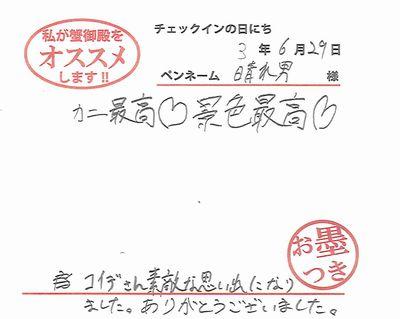 私が蟹御殿を
オススメ
します!!
チェックインの日にち
3 年 6 月 29 日
ペンネーム 晴れ男 様
カニ最高♡ 景色最高♡
お墨
つき
コイデさん素敵な思い出になり
ました。ありがとうございました。